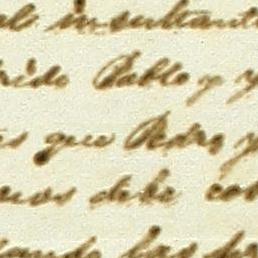 el insultant
rido Pablo y y
es que Pedro y
nos debe con
ando las